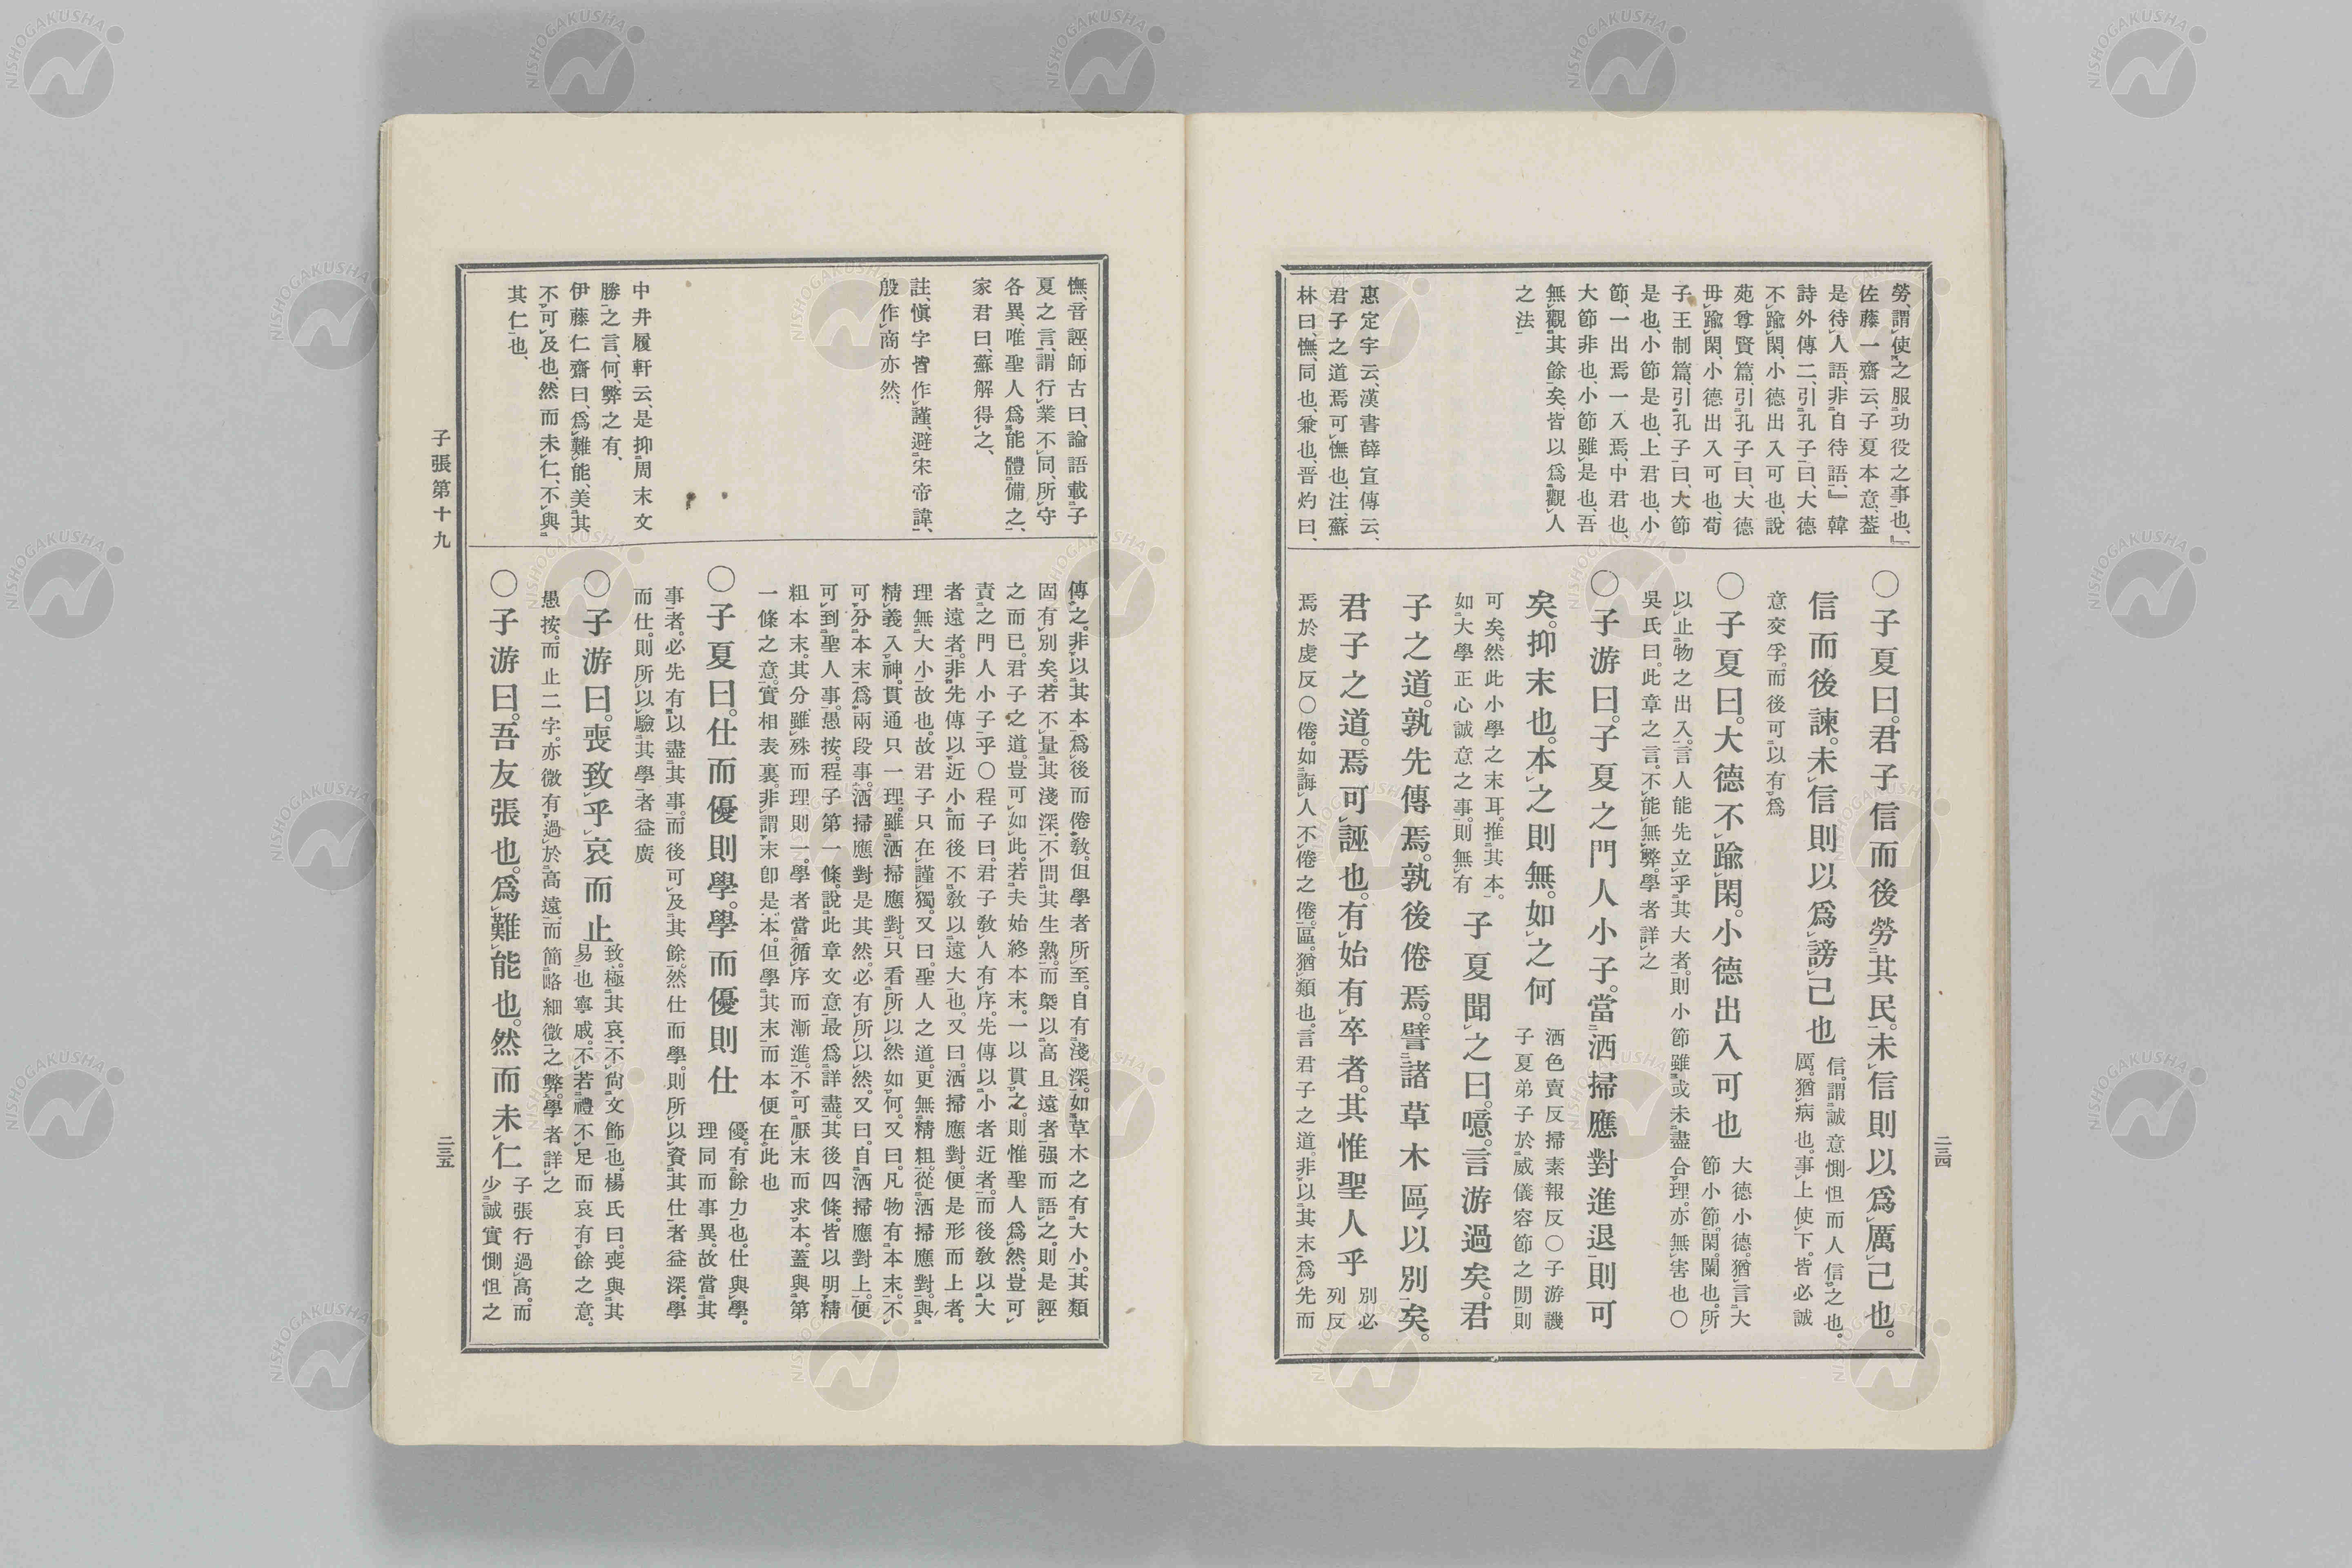 勞、謂使之服功役之事也、』
佐藤一齋云、子夏本意、葢
是待人語、非自待語、』韓
詩外傳二、引孔子曰、大德
不踰閑、小德出入可也、說
苑尊賢篇、引孔子曰、大德
毋踰閑、小德出入可也、荀
子王制篇、引孔子曰、大節
是也、小節是也、上君也、小
節、一出焉一入焉、中君也、
大節非也、小節雖是也、吾
無觀其餘矣、皆以爲觀人
之法
惠定宇云、漢書薛宣傳云、
君子之道焉可憮也、注、蘇
林曰、憮、同也、兼也、晋灼曰、
○子夏曰。君子信而後勞其民。未信則以爲厲己也。
信而後諫。未信則以爲謗己也
信。謂誠意惻怛而人信之也。
厲。猶病也。事上使下。皆必誠
意交孚。而後可以有爲
○子夏曰。大德不踰閑。小德出入可也
大德小德。猶言大
節小節。閑。闌也。所
以止物之出入。言人能先立乎其大者。則小節雖或未盡合理。亦無害也○
吳氏曰。此章之言。不能無弊。學者詳之
○子游曰。子夏之門人小子。當洒掃應對進退則可
矣。抑末也。本之則無。如之何
洒色賣反掃素報反○子游譏
子夏弟子於威儀容節之閒則
可矣。然此小學之末耳。推其本。
如大學正心誠意之事。則無有
子夏聞之曰。噫。言游過矣。君
子之道。孰先傳焉。孰後倦焉。譬諸草木區以別矣。
君子之道。焉可誣也。有始有卒者。其惟聖人乎
別必
列反
焉於虔反○倦。如誨人不倦之倦。區。猶類也。言君子之道。非以其末爲先而
二三四
憮、音誣、師古曰、論語載子
夏之言、謂行業不同、所守
各異、唯聖人爲能體備之、
家君曰、蘇解得之、
註、愼字皆作謹、避宋帝諱、
殷作商亦然、
中井履軒云、是抑周末文
勝之言、何弊之有、
伊藤仁齋曰、爲難能、美其
不可及也、然而未仁、不與
其仁也、
傳之。非以其本爲後而倦敎。但學者所至。自有淺深。如草木之有大小。其類
固有別矣。若不量其淺深。不問其生熟。而槩以高且遠者强而語之。則是誣
之而已。君子之道。豈可如此。若夫始終本末。一以貫之。則惟聖人爲然。豈可
責之門人小子乎○程子曰。君子敎人有序。先傳以小者近者。而後敎以大
者遠者。非先傳以近小而後不敎以遠大也。又曰。洒掃應對。便是形而上者。
理無大小故也。故君子只在謹獨。又曰。聖人之道。更無精粗。從洒掃應對。與
精義入神。貫通只一理。雖洒掃應對。只看所以然如何。又曰。凡物有本末。不
可分本末爲兩段事。洒掃應對是其然。必有所以然。又曰。自洒掃應對上。便
可到聖人事。愚按。程子第一條。說此章文意。最爲詳盡。其後四條。皆以明精
粗本末。其分雖殊而理則一。學者當循序而漸進。不可厭末而求本。蓋與第
一條之意。實相表裏。非謂末卽是本。但學其末而本便在此也
○子夏曰。仕而優則學。學而優則仕
優。有餘力也。仕與學。
理同而事異。故當其
事者。必先有以盡其事。而後可及其餘。然仕而學。則所以資其仕者益深。學
而仕。則所以驗其學者益廣
○子游曰。喪致乎哀而止
致。極其哀。不尙文飾也。楊氏曰。喪與其
易也寧戚。不若禮不足而哀有餘之意。
愚按。而止二字。亦微有過於高遠。而簡略細微之弊。學者詳之
○子游曰。吾友張也。爲難能也。然而未仁
子張行過高。而
少誠實惻怛之
子張第十九
二三五